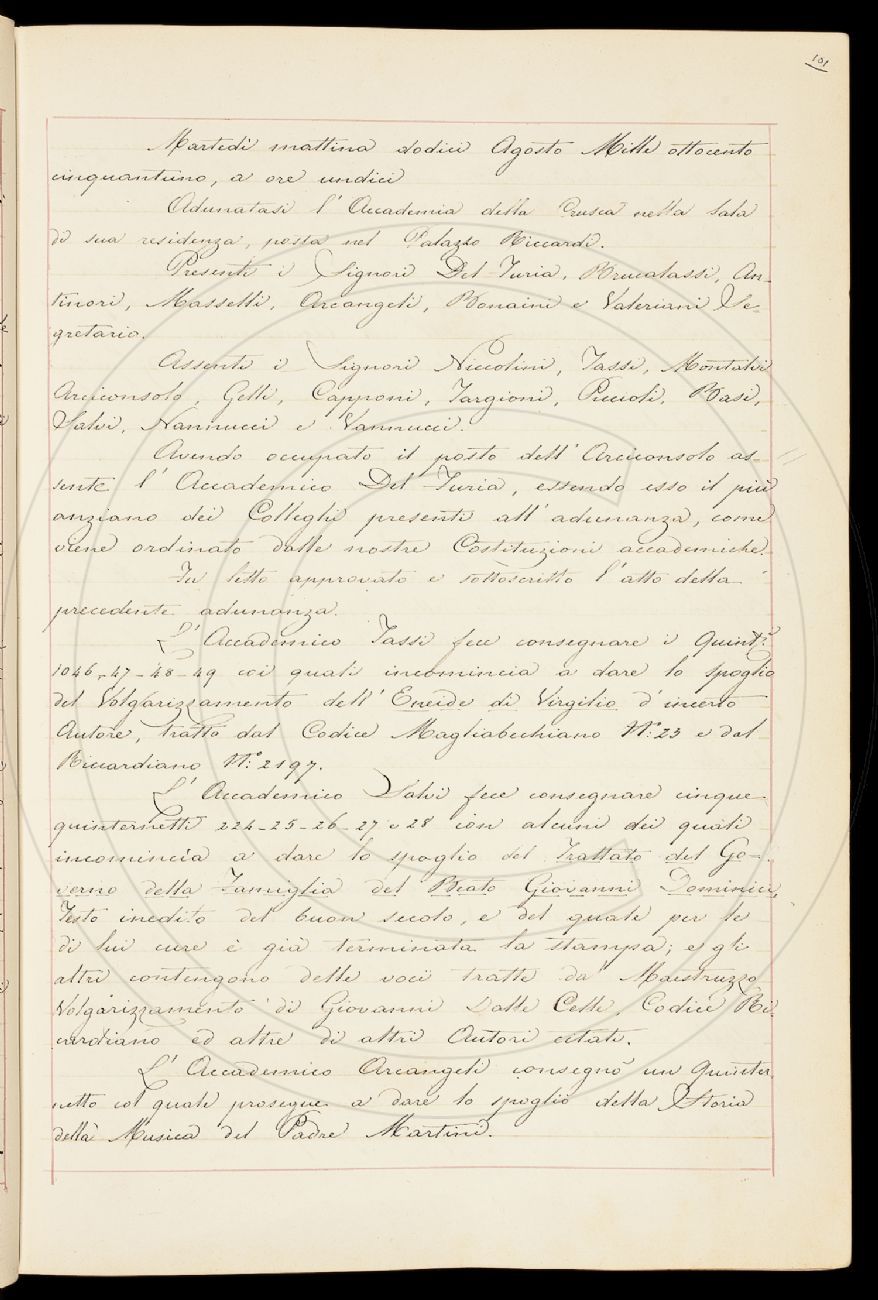 101
Martedì mattina dodici Agosto Mille ottocento
cinquantuno, a ore undici
Adunatasi l'Accademia della Crusca nella Sala
di sua residenza, posta nel Palazzo Riccardi.
Presenti i Signori Del Furia, Brucalassi, An-
tinori, Masselli, Arcangeli, Bonaini e Valeriani Se-
gretario.
Assenti i Signori Niccolini, Tassi, Montalvi
Arciconsolo, Gelli, Capponi, Targioni, Puccioli, Basi,
Salvi, Nannucci e Vannucci.
Avendo occupato il posto dell'Arciconsolo as-
sente l'Accademico Del Furia, essendo esso il più
anziano dei Colleghi presenti all'adunanza, come
viene ordinato dalle nostre Costituzioni accademiche.
Fu letto approvato e sottoscritto l'atto della
precedente adunanza.
L'Accademico Tassi fece consegnare i Quint.ⁱ
1046,-47-48-49 coi quali incomincia a dare lo spoglio
del Volgarizzamento dell'Eneide di Virgilio d'incerto
Autore, tratto dal Codice Magliabechiano N.° 23 e dal
Riccardiano N.° 2197.
L'Accademico Salvi fece consegnare cinque
quinternetti 224-25-26-27 e 28 con alcuni dei quali
incomincia a dare lo spoglio del Trattato del Go-
verno della Famiglia del Beato Giovanni Dominici,
Testo inedito del buon secolo, e del quale per le
di lui cure è già terminata la stampa; e gli
altri contengono delle voci tratte da' Maestruzzo
Volgarizzamento di Giovanni Dalle Celle, Codice Ri-
cardiano ed altre di altri Autori citati.
L'Accademico Arcangeli consegnò un Quinter-
netto col quale prosegue a dare lo spoglio della Storia
della Musica del Padre Martini.